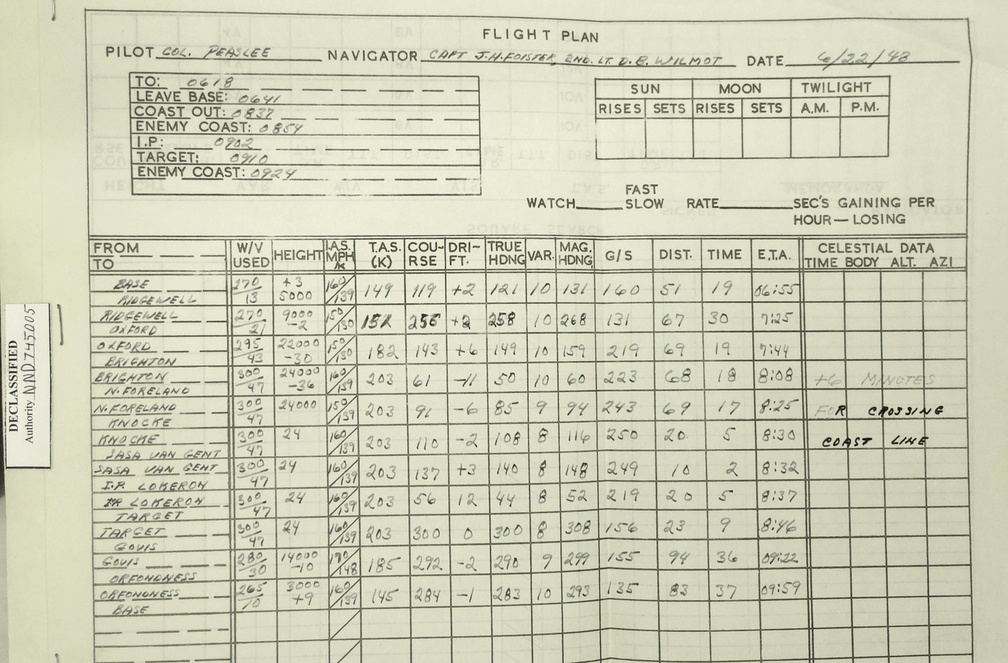 FLIGHT PLAN
PILOT COL. PEASLEE NAVIGATOR CAPT J.H. FOISTER, AND. LT. D.B. WILMOT DATE 6/22/43
TO: 0618
LEAVE BASE: 0641
COAST OUT: 0837
ENEMY COAST: 0854
I.P: 0902
TARGET: 0910
ENEMY COAST: 0924
SUN MOON TWILIGHT
RISES SETS RISES SETS A.M. P.M.
WATCH FAST SLOW RATE SEC'S GAINING PER
HOUR — LOSING
FROM TO W/V USED HEIGHT I.A.S. MPH/K T.A.S. (K) COURSE DRIFT. TRUE HDNG VAR. MAG. HDNG. G/S DIST. TIME E.T.A. CELESTIAL DATA
TIME BODY ALT. AZI
BASE 270 +3 160
RIDGEWELL 13 5000 139 149 119 +2 121 10 131 160 51 19 06:55
RIDGEWELL 270 9000 150
OXFORD 21 -2 130 151 256 +2 258 10 268 131 67 30 7:25
OXFORD 295 22000 150
BRIGHTON 43 -30 130 182 143 +6 149 10 159 219 69 19 7:44
BRIGHTON 300 24000 160
N. FORELAND 47 -36 139 203 61 -11 50 10 60 223 68 18 8:08 +6 MINUTES
N. FORELAND 300 24000 150
KNOCKE 47 139 203 91 -6 85 9 94 243 69 17 8:25 FOR CROSSING
KNOCKE 300 24 160
SASA VAN GENT 47 139 203 110 -2 108 8 116 250 20 5 8:30 COAST LINE
SASA VAN GENT 300 24 160
I.P. LOKERON 47 139 203 137 +3 140 8 148 249 10 2 8:32
LOKERON 300 24 160
TARGET 47 139 203 56 12 44 8 52 219 20 5 8:37
TARGET 300 24 160
GOUIS 47 139 203 300 0 300 8 308 156 23 9 8:46
GOUIS 280 14000 170
ORFONDNESS 30 -10 148 185 292 -2 290 9 299 155 94 36 09:22
ORFONDNESS 265 3000 160
BASE 10 +9 139 145 284 -1 283 10 293 135 83 37 09:59
DECLASSIFIED
Authority NND745005